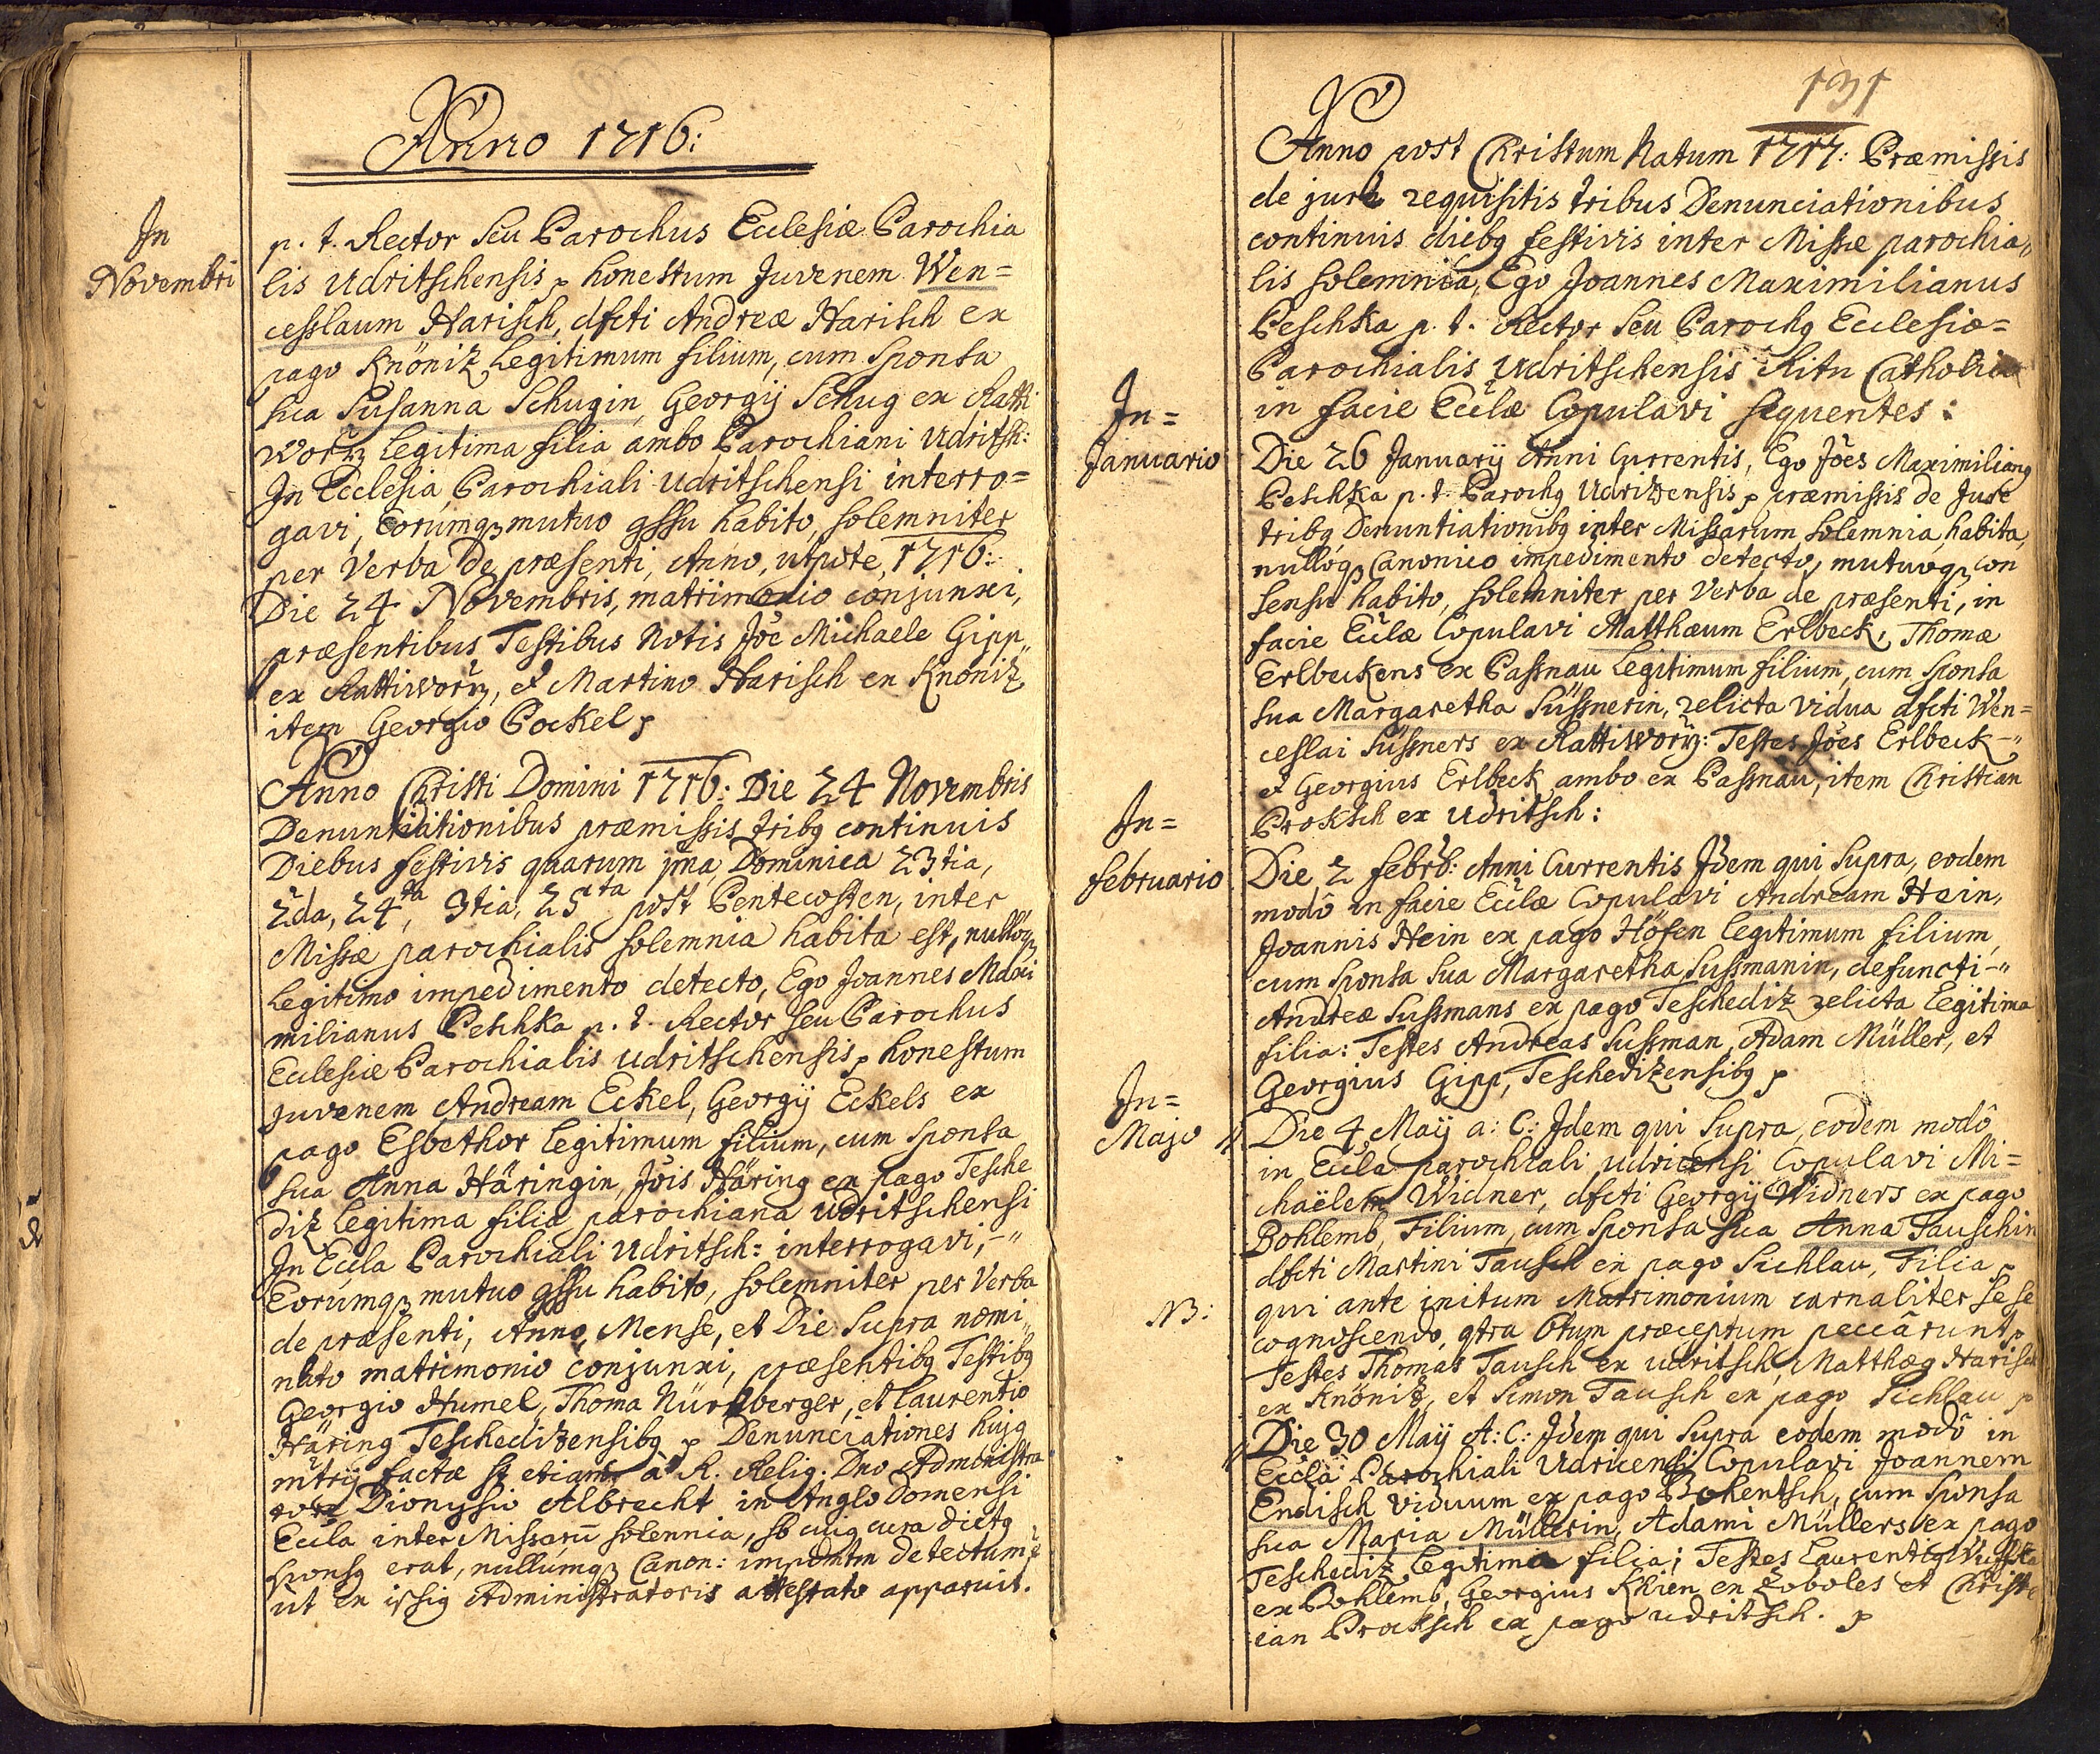 Anno 1716:
In
Novembri
p. t. Rector seu Parochus Ecclesiæ Parochia
lis Udritschensis p honestum Juvenem Wen=
cesslaum Harisch, dfcti Andreæ Harisch ex
pago Knöniz legitimum filium, cum sponsa
sua Susanna Schugin, Georgij Schug ex Ratti
worz legitima filia ambo Parochiani Udritsh:
In Ecclesia Parochiali Udritschensi interro=
gavi, Eorumq; mutuo gssu habito, solemniter
per Verba de præsenti, Anno, utpote, 1716:
Die 24 Novembris, matrimonio conjunxi,
præsentibus Testibus Notis Jõe Michaele Gipp„
ex Rattiworz, et Martino Harisch ex Knöniz
item Georgio Pockel p
Anno Christi Domini 1716: Die 24 Novembris
Denuntiationibus præmissis tribg continuis
Diebus festivis quarum pma Dominica 23tia,
2da, 24ta, 3tia, 25ta post Pentecosten, inter
Missæ parochialis solemnia habita est, nulloq;
legitimo impedimento detecto, Ego Joannes Maxi
milianus Peschka p. t. Rector seu Parochus
Ecclesiæ Parochialis Udritschensis p honestum
juvenem Andream Eckel, Georgij Eckels ex
pago Esbethor legitimum filium, cum sponsa
sua Anna Häringin, Jõis Häring ex pago Tesche
diz legitima filia parochiana Udritschensi
In Eccla Parochiali Udritsch: interrogavi,-„
Eorumq; mutuo gssu habito, solemniter per Verba
de præsenti, Anno, Mense, et Die supra nomi„
nato matrimonio conjunxi, præsentibg Testibg
Georgio Humel, Thoma Nürnberger, et Laurentio
Häring Teschedizensibg p Denunciationes hujg
mtrij factæ st etiam à R. Relig. Dno Administra
tore Dionysio Albrecht in Anglo Domensi
Eccla inter Missarũ solennia, sb cujg cura dictg
sponsg erat, nullumq; Canon: impdmtm detectum ẽ
ut ex issig Administratoris attestato apparuit.
131
Anno post Christum Natum 1717: Præmissis
de jure requisitis tribus Denunciationibus
continuis diebg festivis inter Missæ parochia„
lis solemnia, Ego Joannes Maximilianus
Peschka p. t. Rector seu Parochg Ecclesiæ=
Parochialis Udritschensis Ritu Catholico
in facie Ecclæ Copulavi sequentes:
In=
Januario
Die 26 Januarij Anni Currentis, Ego Jões Maximiliang
Peschka p. t. Parochg Udrizensis p præmissis de Jure
tribg Denuntiationibg inter Missarum solemnia, habita,
nulloq; Canonico impedimento detecto, mutuoq; con
sensu habito, solemniter per Verba de præsenti, in
facie Ecclæ Copulavi Matthæum Erlbeck, Thomæ
Erlbeckens ex Passnau legitimum filium, cum sponsa
sua Margaretha Süssnerin, relicta vidua dfcti Wen=
ceslai Süssners ex Rattiworz: Testes Jões Erlbeck-„
et Georgius Erlbeck ambo ex Passnau, item Christian
Proksch ex Udritsch:
In=
februario
Die 2 febrb: Anni Currentis Idem qui supra, eodem
modô in facie Ecclæ Copulavi Andream Hein,
Joannis Hein ex pago Höfen legitimum filium,
cum sponsa sua Margaretha Sussmanin, defuncti-„
Andreæ Sussmans ex pago Teschediz relicta legitima
filia: Testes Andreas Sussman, Adam Müller, et
Georgius Gipp, Teschedizensibg p
In=
Majo
Die 4 Maij a: C: Idem qui supra, eodem modô
in Eccla parochiali Udricensi Copulavi Mi=
chaëlem Widner, dfcti Georgij Widners ex pago
Bohlemb, Filium, cum sponsa sua Anna Tauschin
dfcti Martini Tausch ex pago Sichlau, Filia p
NB:
qui ante initum Matrimonium carnaliter sese
cognoscendo, qtra 6tum præceptum peccârunt p
Testes Thomas Tausch ex Udritsch, Matthæg Harisch
ex Knöniz, et Simon Tausch ex pago Sichlau p
Die 30 Maij A: C: Idem qui supra eodem modô in
Eccla Parochiali Udricensi Copulavi Joannem
Endisch viduum ex pago Bohentsch, cum sponsa
sua Maria Müllerin, Adami Müllers ex pago
Teschediz legitima filia; Testes Laurentig
ex Bohlemb, Georgius Kkien ex Zoboles et Christ
ian Procksch ex pago Udritsch. p